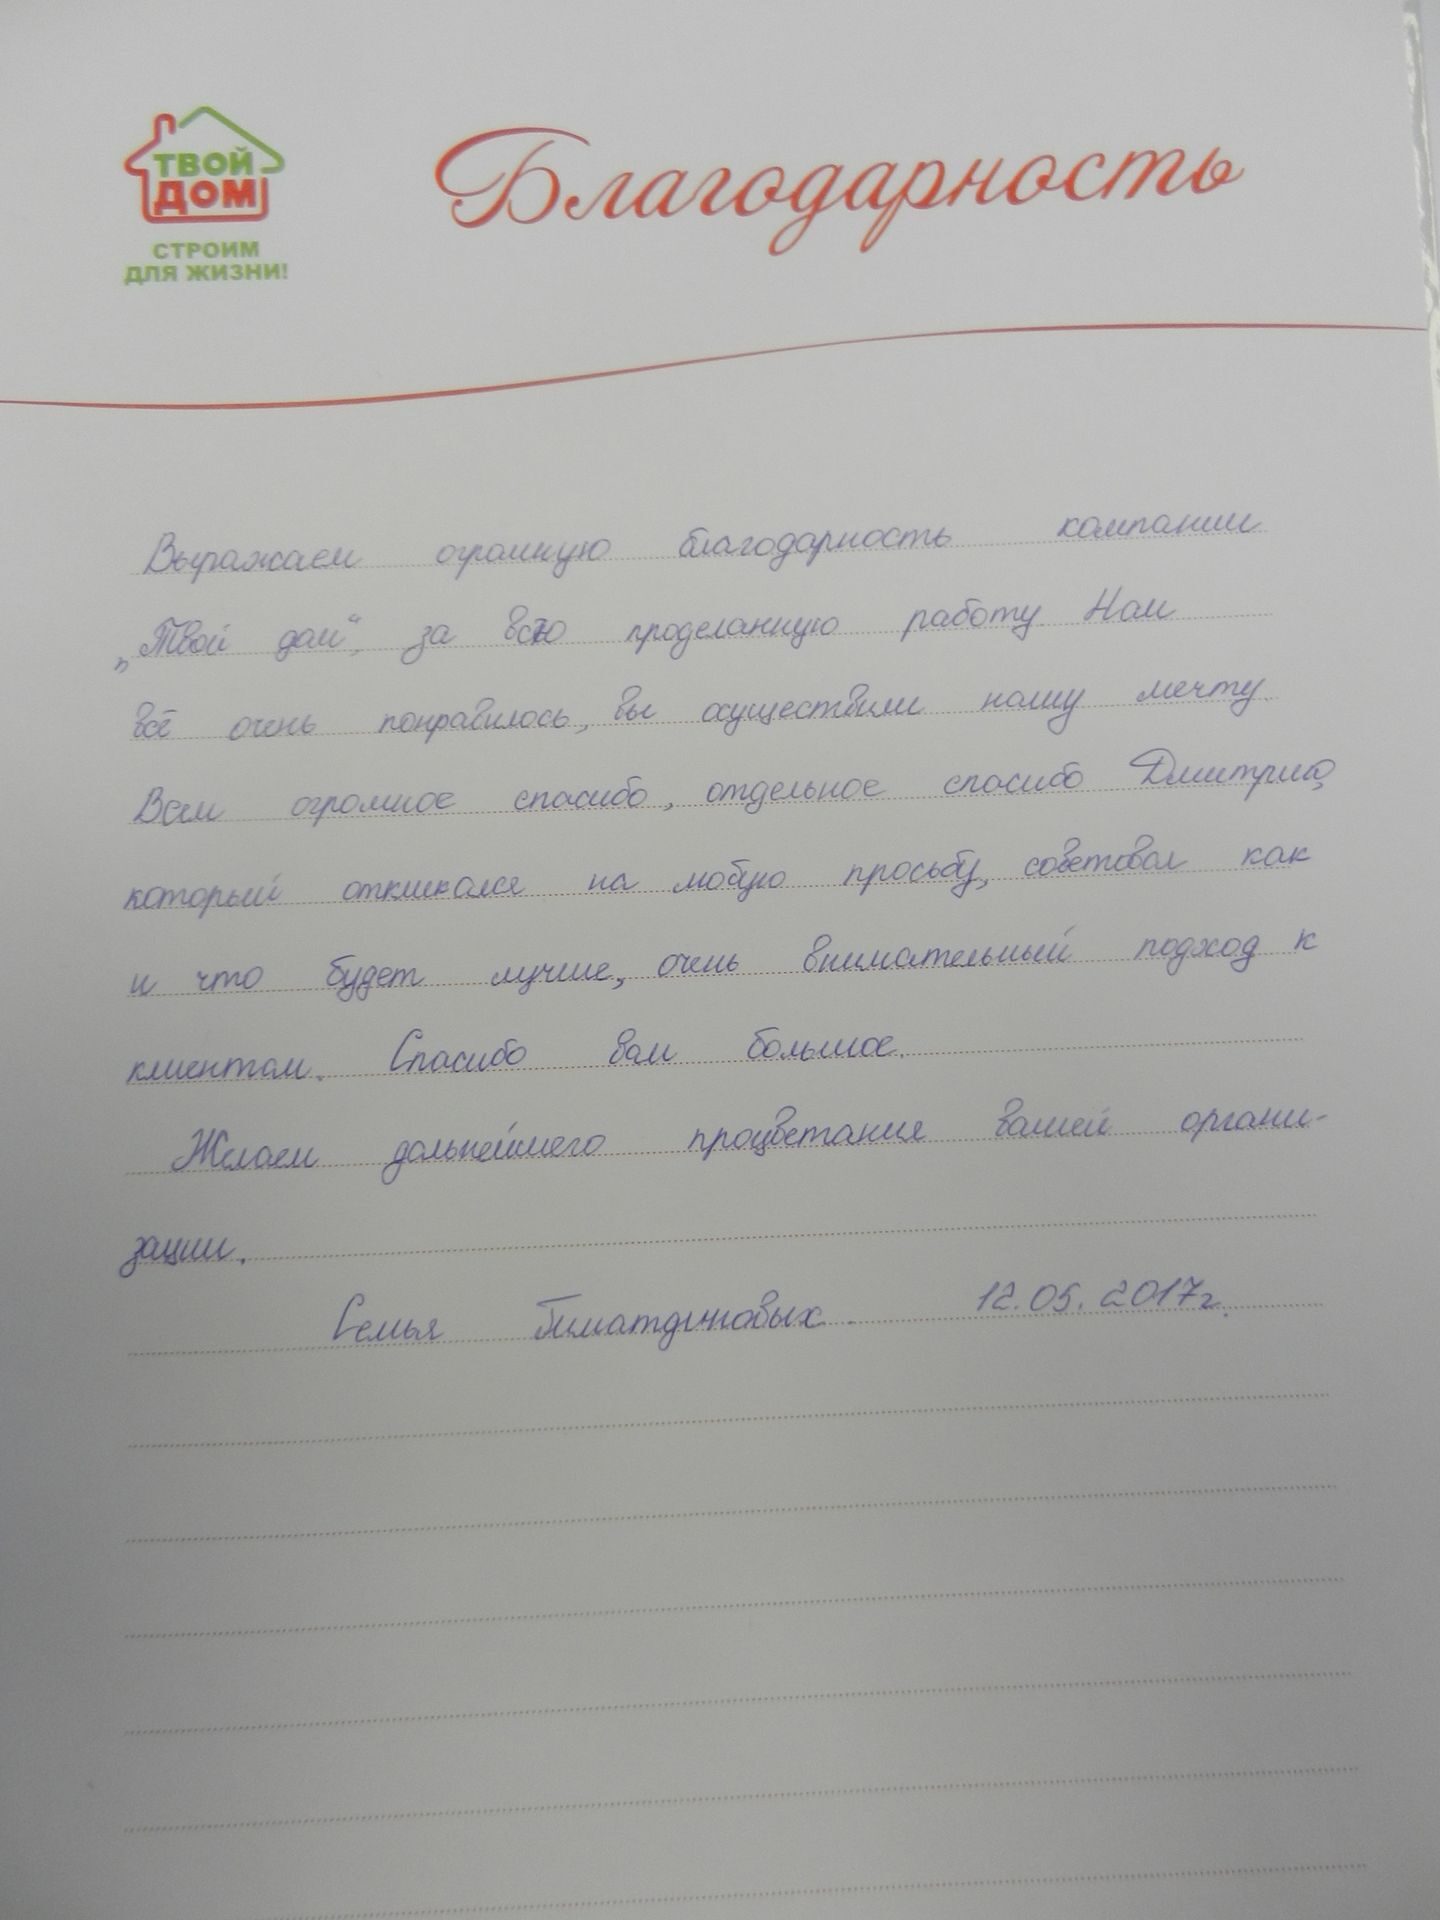 ТВОЙ
ДОМ
СТРОИМ
ДЛЯ ЖИЗНИ!
Благодарность
Выражаем огромную благодарность компании
„Твой дом“, за всю проделанную работу Нам
всё очень понравилось, вы осуществили нашу мечту
Всем огромное спасибо, отдельное спасибо Дмитрию,
который откликался на любую просьбу, советовал как
и что будет лучше, очень внимательный подход к
клиентам. Спасибо вам большое.
Желаем дальнейшего процветания вашей органи-
зации.
Семья Гиматдиновых. 12.05.2017г.